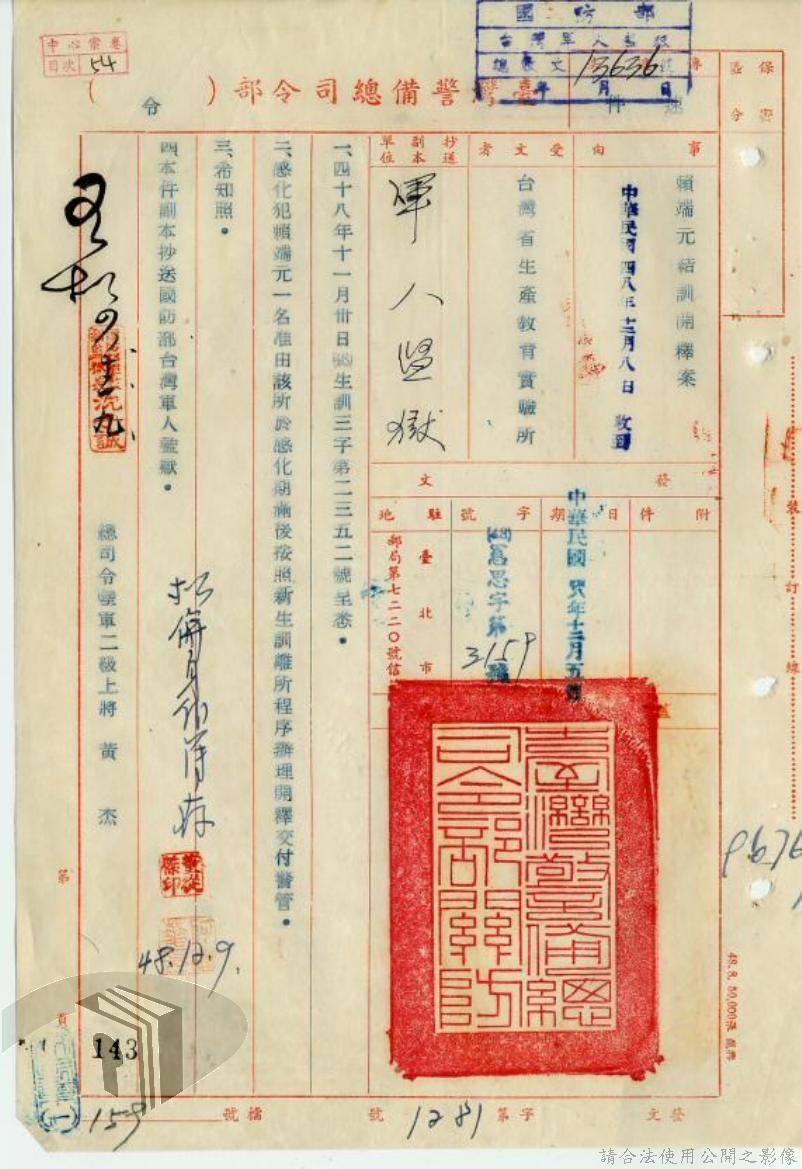 中心案卷
目次 54
國防部
台灣軍人監獄
總收文 13636 號
年 月 日
臺灣警備總司令部( )令
速件
保密區分
事由
賴端元結訓開釋案
中華民國四八年十二月八日 收到
受文者
台灣省生產教育實驗所
抄送副本單位
軍人監獄
發文
附件
日期
中華民國 年十二月五日
字號
(48)思字第3159號
駐地
臺北市
郵局第七二二〇號信箱
一、四十八年十一月卅日(48)生訓三字第二三五二號呈悉。
二、感化犯賴端元一名准由該所於感化期滿後按照新生訓離所程序辦理開釋交付警管。
三、希知照。
四、本件副本抄送國防部台灣軍人監獄。
總司令陸軍二級上將 黃杰
臺灣警備總司令部關防
裝訂線
48.12.9.
第 頁
143
159
發文 字第 1281 號
檔號
9676
請合法使用公開之影像